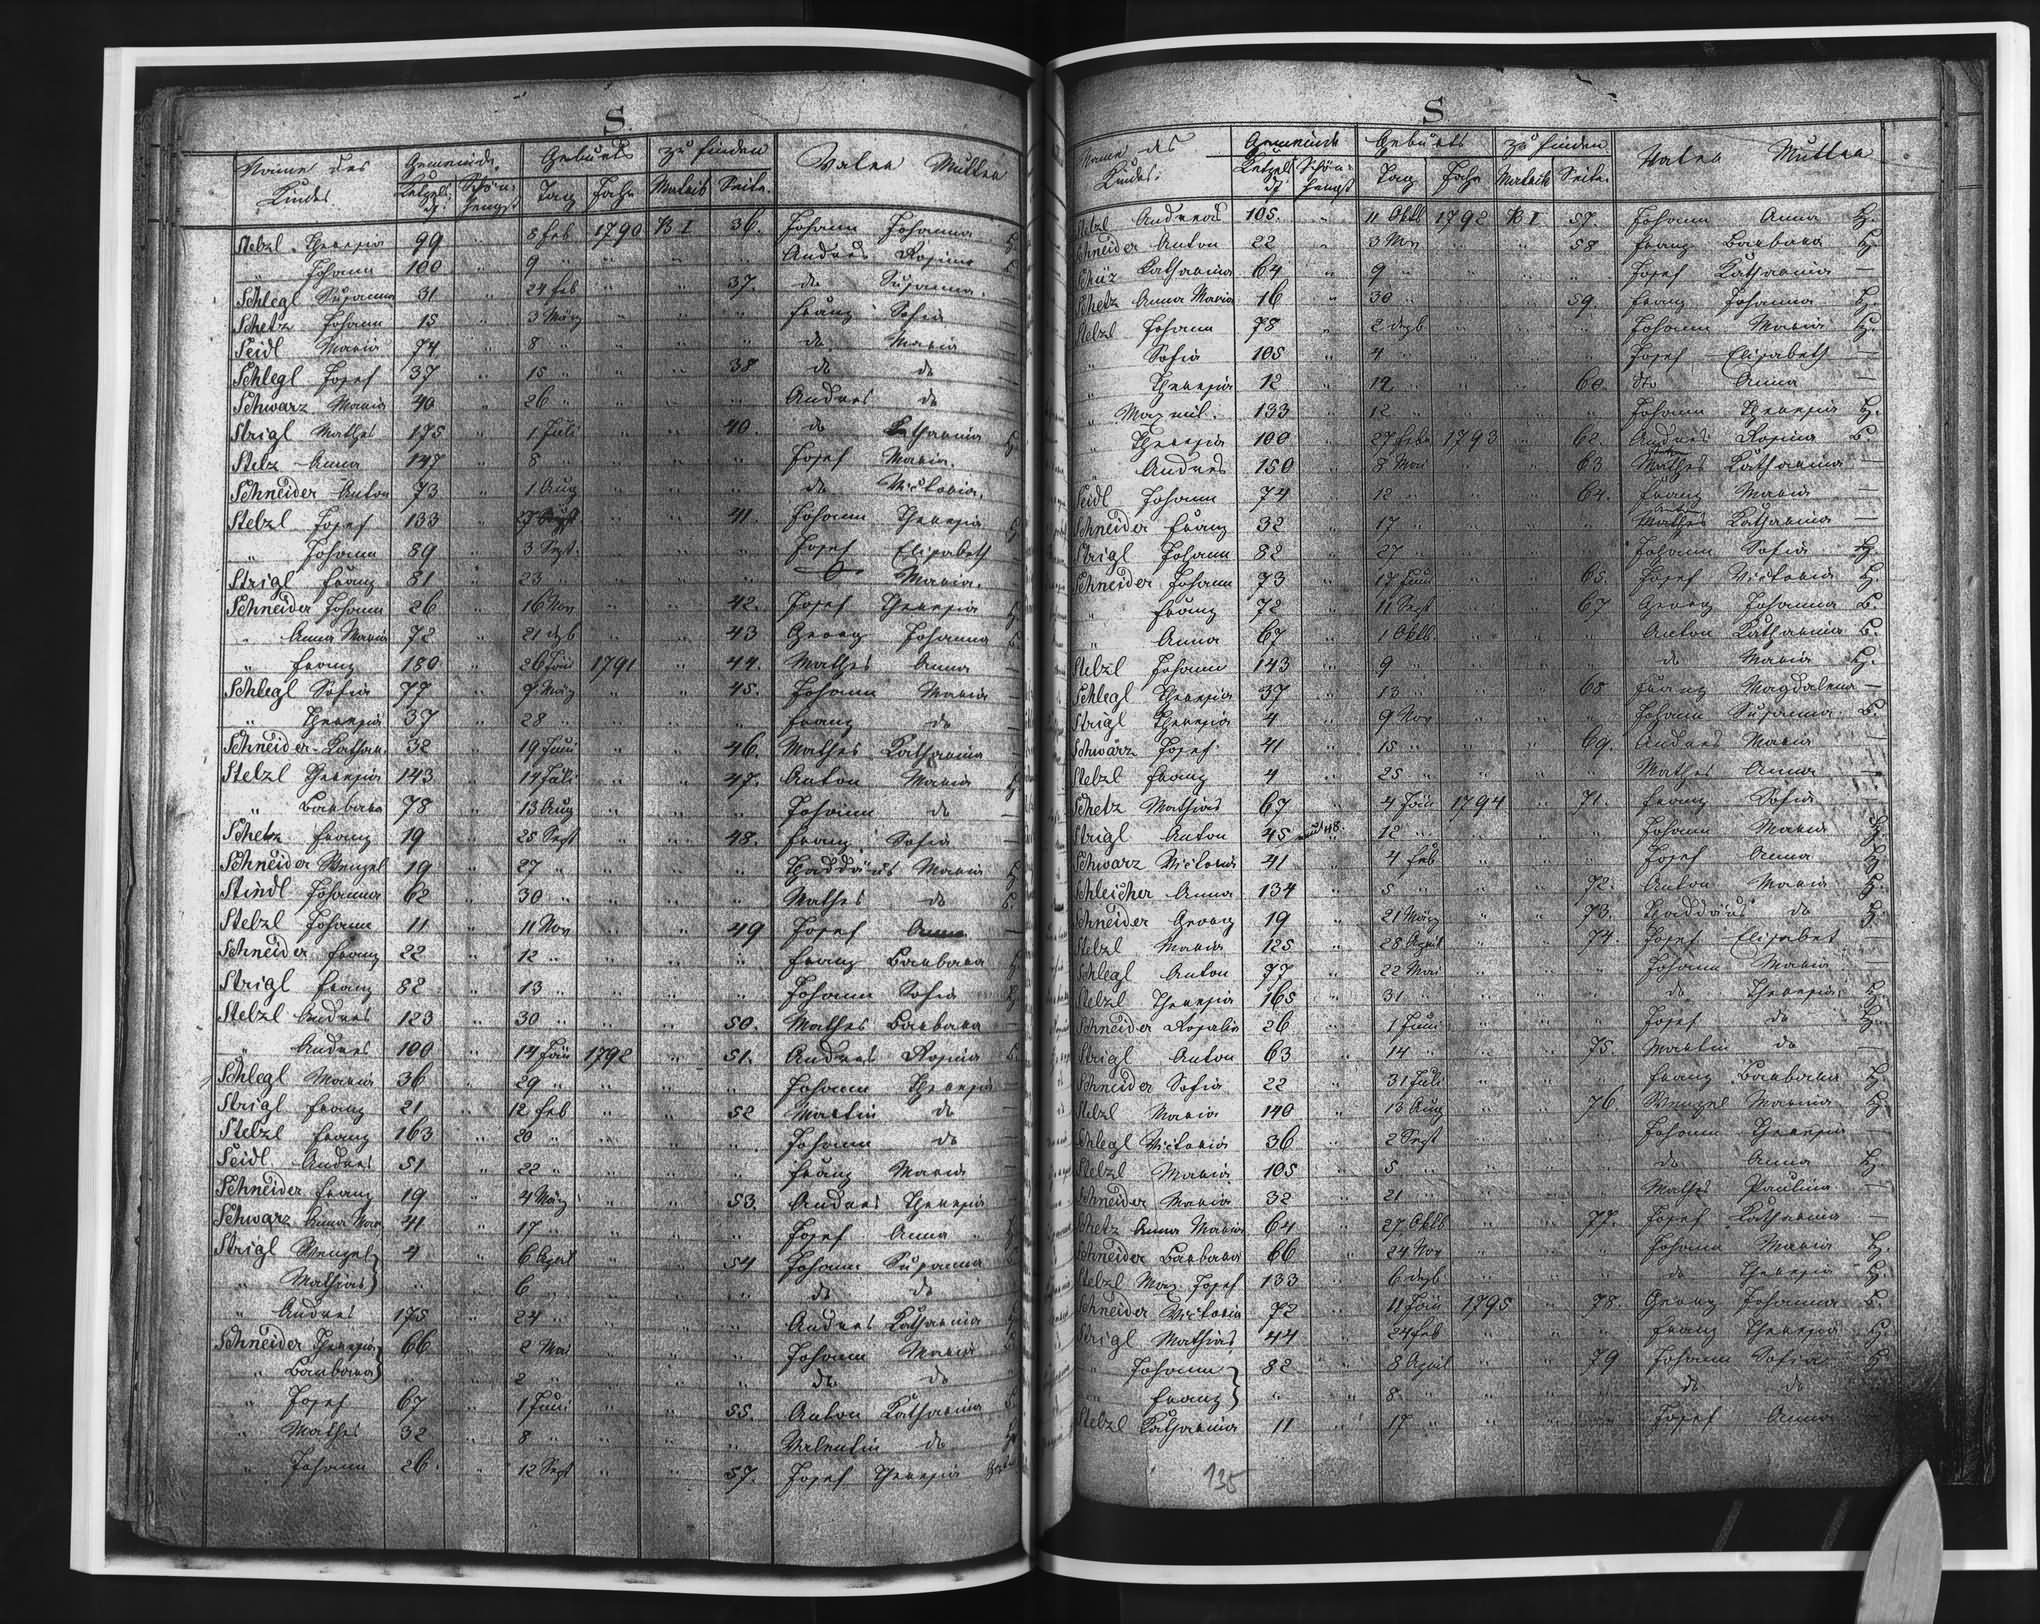 S.
Name des Kindes Gemeinde Ketzelsd. Schönhengst Geburts Tag Jahr zu finden Matrik Seite Vater Mutter
Stelzl Theresia 99 " 8 Feb 1790 B I 36. Johann Johanna
" Johann 100 " 9 " " " " Andres Rosina
Schlegl Susanna 31 " 24 Feb " " 37. do Susanna
Schetz Johann 15 " 3 März " " " Franz Sofia
Seidl Maria 74 " 8 " " " " do Maria
Schlegl Josef 37 " 15 " " " 38 do do —
Schwarz Maria 40 " 26 " " " " Andres do —
Strigl Mathes 175 " 1 Juli " " 40. do Katharina
Stelz Anna 147 " 8 " " " " Josef Maria.
Schneider Anton 73 " 1 Aug " " " do Victoria.
Stelzl Josef 133 " 27 " " 41. Johann Theresia
" Johann 89 " 3 Sept. " " " Josef Elisabeth
Strigl Franz 81 " 23 " " " " Maria.
Schneider Johann 26 " 16 Nov " " 42. Josef Theresia
" Anna Maria 72 " 21 dezb " " 43 Georg Johanna
" Franz 180 " 26 Jän 1791 " 44. Mathes Anna —
Schlegl Sofia 77 " 9 März " " 45. Johann Maria —
" Theresia 37 " 28 " " " " Franz do —
Schneider Kathar. 32 " 19 Juni " " 46. Mathes Katharina
Stelzl Theresia 143 " 14 Juli " " 47. Anton Maria
" Barbara 78 " 13 Aug " " " Johann do —
Schetz Franz 19 " 25 Sept " " 48. Franz Sofia —
Schneider Wenzel 19 " 27 " " " " Thaddäus Maria
Stindl Johanna 62 " 30 " " " " Mathes do
Stelzl Johann 11 " 11 Nov " " 49 Josef Anna —
Schneider Franz 22 " 12 " " " " Franz Barbara
Strigl Franz 82 " 13 " " " " Johann Sofia
Stelzl Andres 123 " 30 " " " 50. Mathes Barbara —
" Andres 100 " 14 Jän 1792 " 51. Andres Rosina
Schlegl Maria 36 " 29 " " " " Johann Theresia —
Strigl Franz 21 " 12 Feb " " 52 Martin do —
Stelzl Franz 163 " 20 " " " " Johann do —
Seidl Andres 51 " 22 " " " " Franz Maria —
Schneider Franz 19 " 4 März " " 53. Andres Theresia —
Schwarz Anna Mar. 41 " 17 " " " " Josef Anna
Strigl Wenzel } 4 " 6 April " " 54 Johann Susanna
" Mathias } " " 6 " " " " do do
" Andres 175 " 24 " " " " Andres Katharina
Schneider Theresia } 66 " 2 Mai " " " Johann Maria
" Barbara } " " 2 " " " " do do
" Josef 67 " 1 Juni " " 55. Anton Katharina
" Mathes 32 " 8 " " " " Valentin do
" Johann 26. " 12 Sept " " 57. Josef Theresia
S
Name des Kindes. Gemeinde Ketzelsd. Schönhengst Geburts Tag Jahr zu finden Matrik Seite. Vater Mutter
Stelzl Andreas 105. " 11 Oktb 1792 B I. 57. Johann Anna H.
Schneider Anton 22 " 3 Nov " " 58 Franz Barbara H.
Katharina 64 " 9 " " " " Josef Katharina —
Schetz Anna Maria 16 " 30 " " " 59. Franz Johanna H.
Stelzl Johann 78 " 2 dezb " " " Johann Maria H.
" Sofia 105 " 4 " " " " Josef Elisabeth —
" Theresia 12 " 12 " " " 60. do Anna —
" Maxmil. 133 " 12 " " " " Johann Theresia H.
" Theresia 100 " 27 Febr 1793 " 62. Andres Rosina B.
" Andres 150 " 8 Mai " " 63 Mathes Katharina —
Seidl Johann 74 " 12 " " " 64. Franz Maria —
Schneider Franz 32 " 17 " " " " Mathes Katharina —
Strigl Johann 82 " 27 " " " " Johann Sofia H.
Schneider Johann 73 " 17 Juni " " 65. Josef Victoria H.
" Franz 72 " 11 Sept " " 67 Georg Johanna B.
" Anna 67 " 1 Oktb. " " " Anton Katharina B.
Stelzl Johann 143 " 9 " " " " do Maria H.
Schlegl Theresia 37 " 13 " " " 68 Franz Magdalena —
Strigl Theresia 4 " 9 Nov " " " Johann Susanna B.
Schwarz Josef 41 " 15 " " " 69. Andres Maria —
Stelzl Franz 4 " 25 " " " " Mathes Anna —
Schetz Mathias 67 " 4 Jän 1794 " 71. Franz Sofia —
Strigl Anton 45 12 " " " " Johann Maria H.
Schwarz Victoria 41 " 4 Feb " " " Josef Anna H
Schleicher Anna 134 " 5 " " " 72. Anton Maria H.
Schneider Georg 19 " 21 März " " 73. Thaddäus do H.
Stelzl Maria 125 " 28 April " " 74. Josef Elisabet —
Schlegl Anton 77 " 22 Mai " " " Johann Maria —
Stelzl Theresia 165 " 31 " " " " do Theresia H.
Schneider Rosalia 26 " 1 Juni " " " Josef do H.
Strigl Anton 63 " 14 " " " 75. Martin do —
Schneider Sofia 22 " 31 Juli " " " Franz Barbara H.
Stelzl Maria 140 " 13 Aug " " 76. Wenzel Marina H.
Schlegl Victoria 36 " 2 Sept " " " Johann Theresia —
Stelzl Maria 105 " 5 " " " " do Anna H.
Schneider Maria 32 " 21 " " " " Mathes Paulina —
Schetz Anna Maria 64 " 27 Oktb " " 77. Josef Katharina —
Schneider Barbara 66 " 24 Nov " " " Johann Maria H.
Stelzl Max Josef 133 " 6 dezb " " " do Theresia H.
Schneider Victoria 72 " 11 Jän 1795 " 78. Georg Johanna B.
Strigl Mathias 44 " 24 Feb " " " Franz Theresia H.
" Johann } 82 " 8 April " " 79 Johann Sofia H
" Franz } " " 8 " " " " do do
Stelzl Katharina 11 " 17 " " " " Josef Anna
135